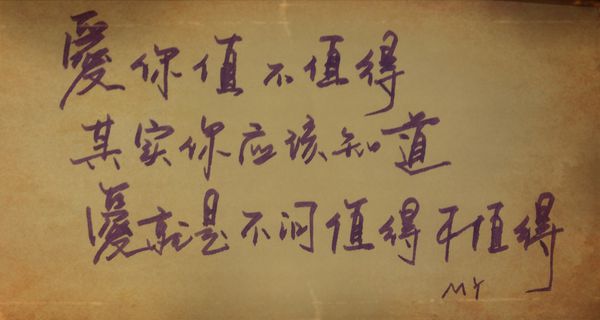 愛你值不值得
其实你应该知道
愛就是不问值得不值得
MY